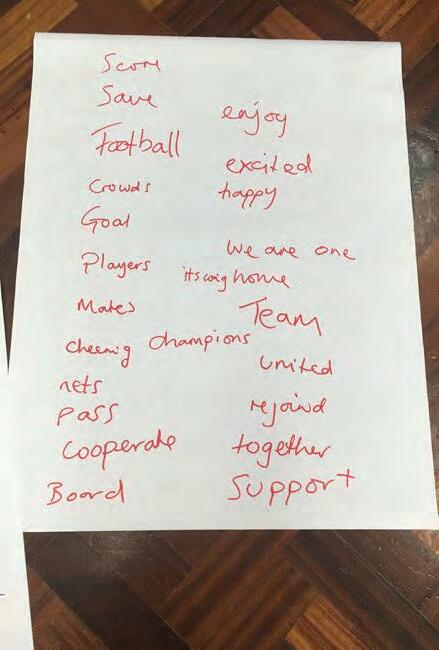 Score
Save
Football
Crowds
Goal
Players
Mates
Cheering
nets
pass
Cooperate
Board
enjoy
excited
happy
We are one
its coig home
Team
Champions
United
rejoind
together
Support